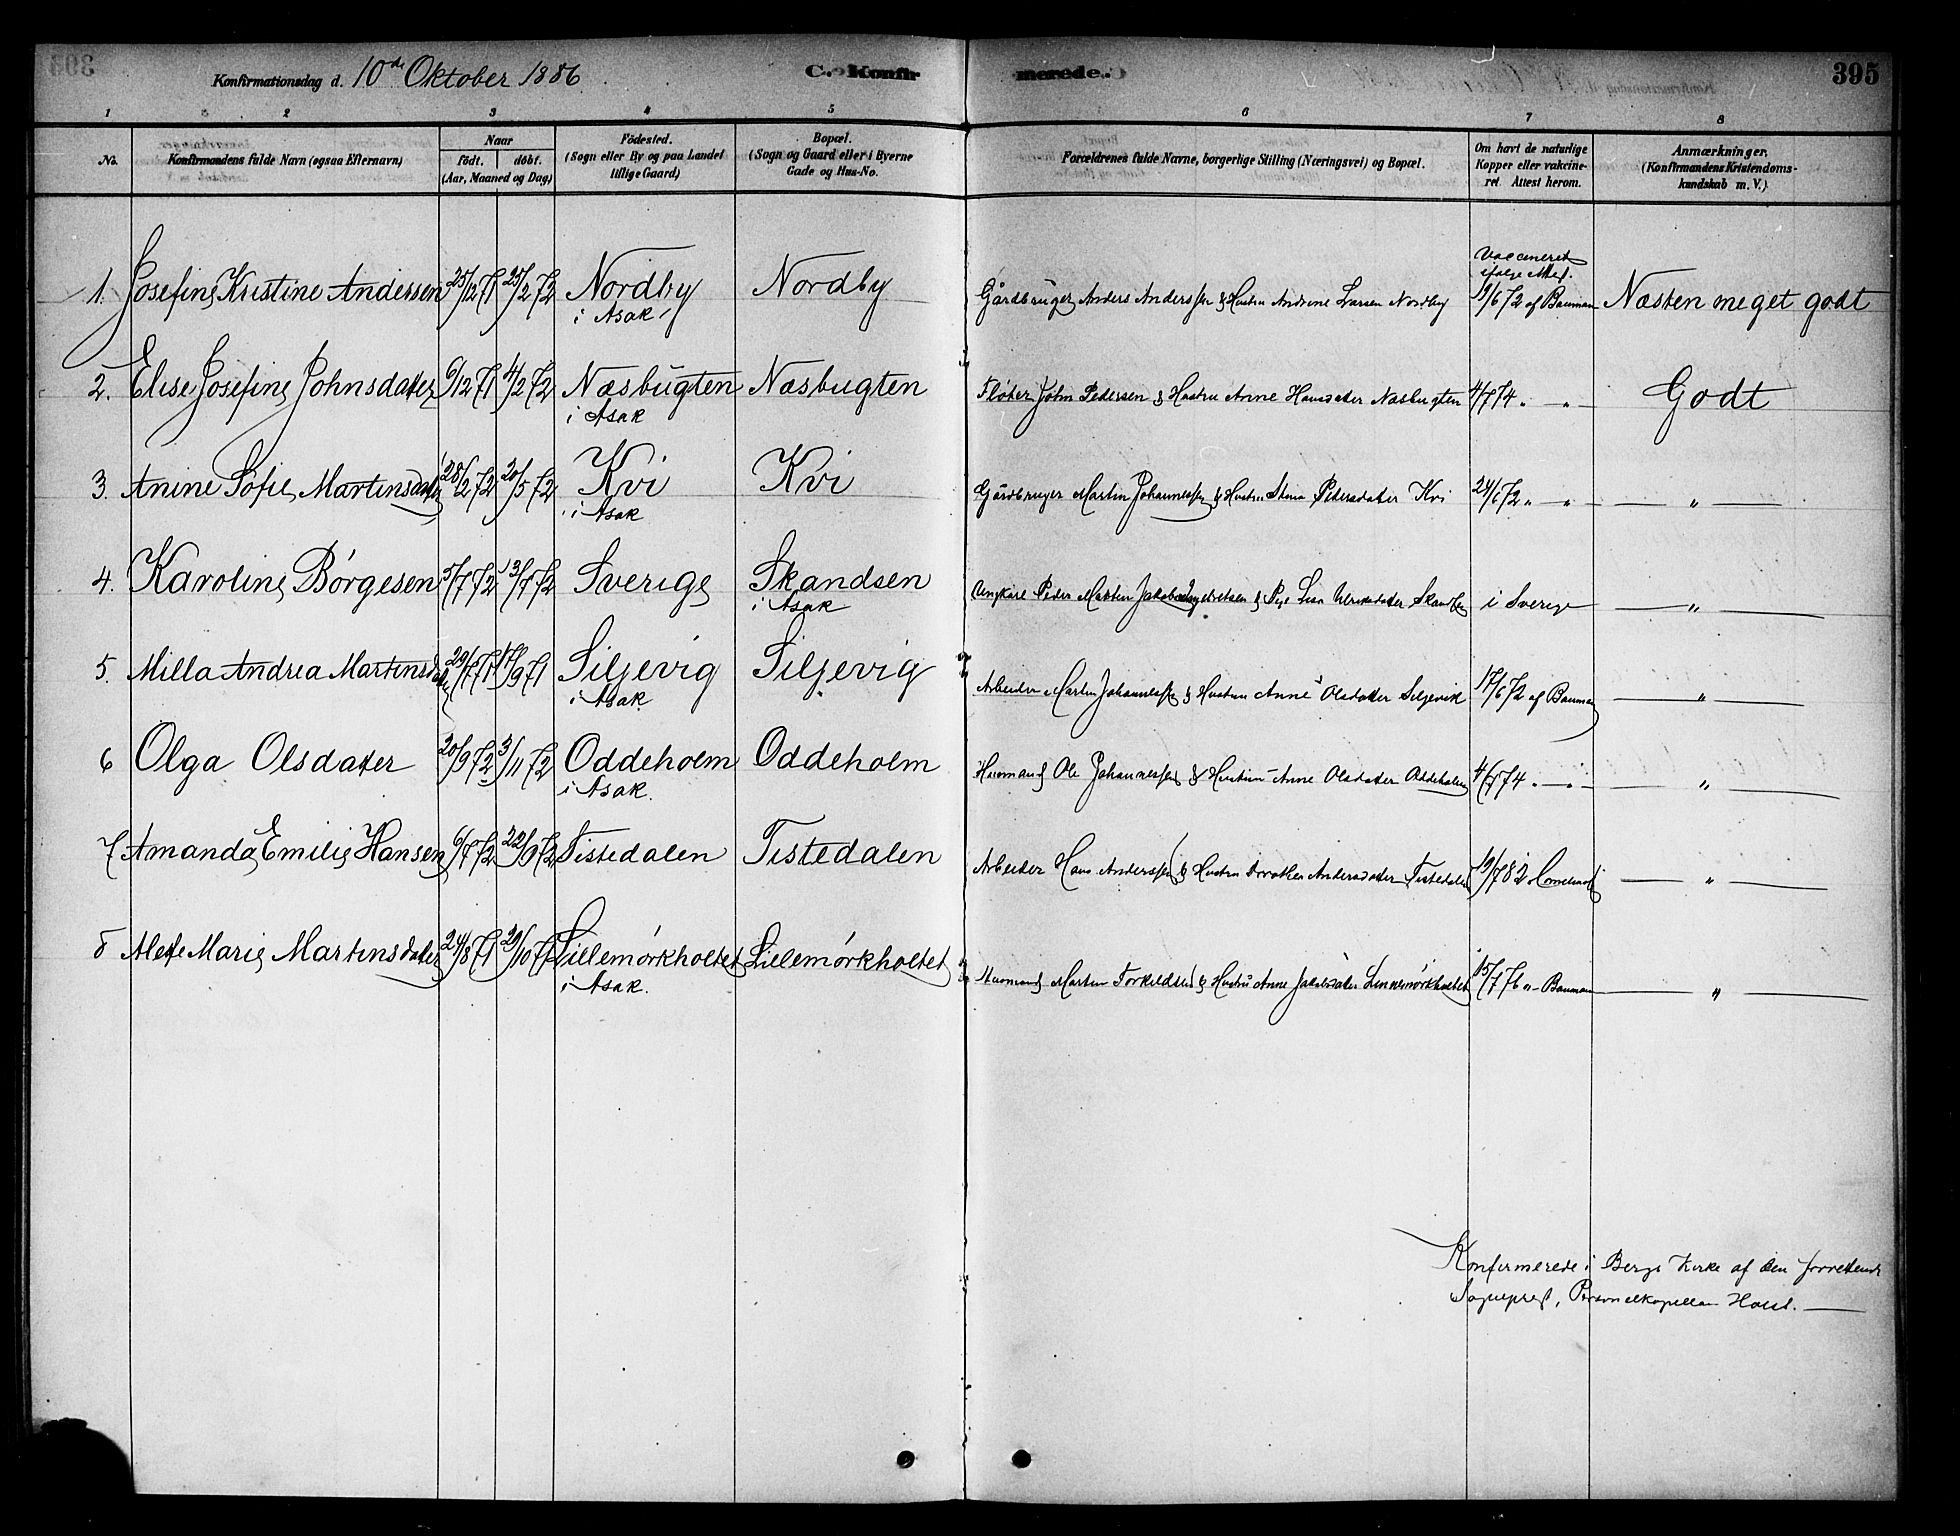 Konfirmationsdag d. 10de Oktober 1886.
C. Konfirmerede. 395
1 2 3 4 5 6 7 8
No. Konfirmandens fulde Navn (ogsaa Efternavn) Naar födt. döbt. (Aar, Maaned og Dag) Födested. (Sogn eller By og paa Landet tillige Gaard) Bopæl. (Sogn og Gaard eller i Byerne Gade og Hus-No. Forældrenes fulde Navne, borgerlige Stilling (Næringsvei) og Bopæl. Om havt de naturlige Kopper eller vakcineret. Attest herom. Anmærkninger. (Konfirmandens Kristendomskundskab m. V.)
1. Josefine Kristine Andersen 25/12 71 25/2 72 Nordby i Asak Nordby Gårdbruger Anders Anderssen & Hustru Andrine Larsen Nordby Vaccineret ifølge Attest. 19/6 72 af Bauman Næsten meget godt
2. Elise Josefine Johnsdatter 6/12 71 4/2 72 Næsbugten i Asak Næsbugten Fløter John Pedersen & Hustru Anne Hansdatter Næsbugten 4/7 74 „ — „ — Godt
3. Anine Sofie Martinsdatter 28/2 72 20/5 72 Kvi i Asak Kvi Gårdbruger Martin Johannessen & Hustru Pedersdatter Kvi 24/6 72 „ — „ — — „ —
4. Karoline Børgesen 5/7 72 13/7 72 Sverige Skandsen i Asak Ungkarl Peder & Pige Lisa Skandsen i Sverige — „ —
5. Milla Andrea Martinsdatter 29/7 71 17/9 71 Siljevig i Asak Siljevig Arbeider Martin Johannessen & Hustru Anne Olsdatter Siljevik 17/6 72 af Bauman — „ —
6 Olga Olsdatter 20/9 72 3/11 72 Oddeholm i Asak. Oddeholm Husmand Ole Johannessen & Hustru Anne Olsdatter Oddeholm 4/7 74 „ — „ — — „ —
7 Amanda Emilie Hansen 6/7 72 22/9 72 Tistedalen Tistedalen Arbeider Hans Anderssen & Hustru Dorothea Andersdatter Tistedalen 19/7 82 — „ —
8 Alette Marie Martinsdatter 24/8 71 29/10 71 Lillemørkholtet i Asak. Lillemørkholtet Husmand Martin Torkildsen & Hustru Anne Jakobsdatter Lillemørkholtet 15/7 76 „ Bauman — „ —
Konfirmerede i Bergs Kirke af den forrettende
Sognepræst, Personelkapellan Holst. —